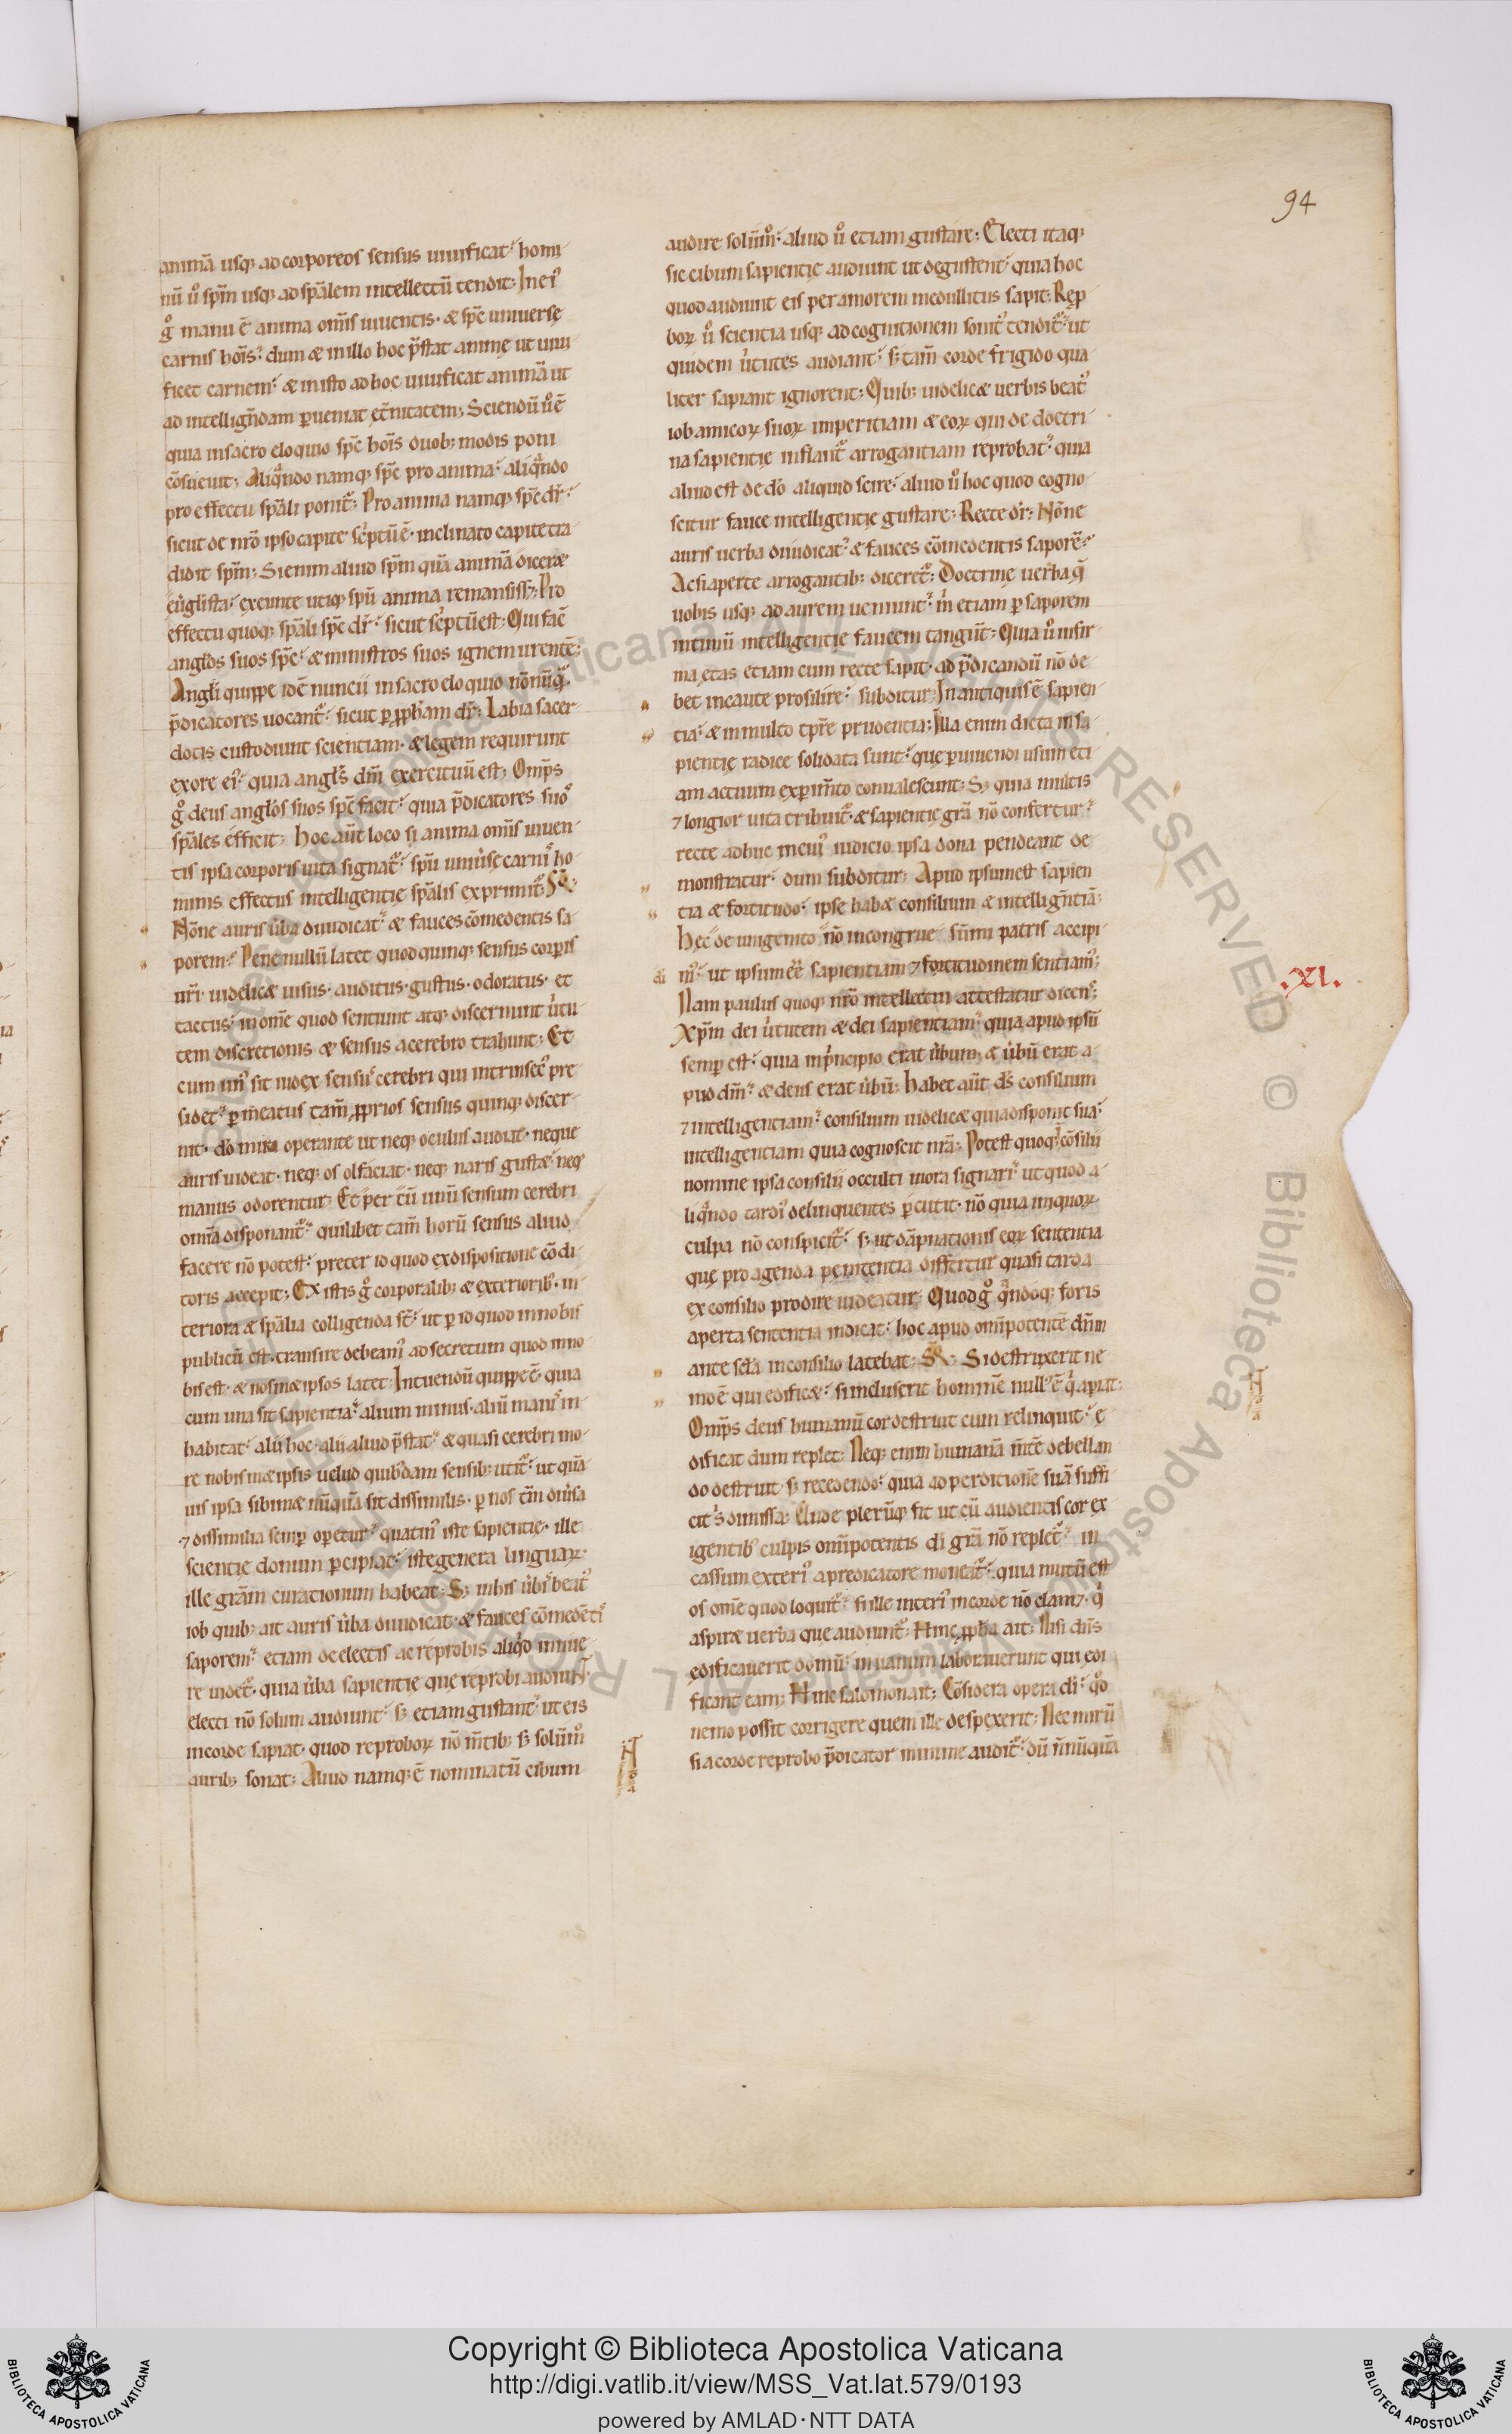 94
animā usq; ad corporeos sensus uiuificat. homi
nū ůo spm̄ usq; ad spālem intellectū tendit; In ei᷒
gͦ manu ē anima om̄is uiuentis. & spc̄ uniuerse
carnis hois̄. dum & in illo hoc p̄stat anime ut uiui
ficet carnem. & in isto ad hoc uiuificat animā ut
ad intelligēdam ꝑueniat et̄nitatem; Sciendū ůo ē
quia in sacro eloquio spc̄ hois̄ duob; modis poni
cōsueuit; Aliqͣndo namq; spc̄ pro anima. aliqͣndo
pro effectu spāli ponit᷑; Pro anima namq; spc̄ dr̄.
sicut de nrō ipso capite scͥptū ē. inclinato capite tra
didit spm̄; Si enim aliud spm̄ quā animā dicer&
eug̃lista. exeunte utiq; spū anima remansiss&; Pro
effectu quoq; spāli spc̄ dr̄. sicut scͥptū est; Qui fac̄
angl̄os suos spc̄. & ministros suos ignem urentē;
Angl̄i quippe idē nuncii in sacro eloquio nōnūqͣ
p̄dicatores uocant᷑. sicut ꝑ ꝓph̄am dr̄; Labia sacer
dotis custodiunt scientiam. & legem requirunt
ex ore ei᷒. quia angl̄s dn̄i exercituū est; Omp̄s
gͦ deus angl̄os suos spc̄ facit. quia p̄dicatores suo᷒
spāles efficit; Hoc aūt loco si anima om̄is uiuen
tis ipsa corporis uita signat᷑. spū uniu̇se carni᷒ ho
minis effectus intelligentie spālis exprimit᷑; Sꝗ
Nōne auris u̇ba diiudicat. & fauces cōmedentis sa
porem. Pene nullū latet quod quinq; sensus corꝑis
nr̄i. uidelic& uisus. auditus. gustus. odoratus. et
tactus. in om̄e quod sentiunt atq; discernunt u̇tu
tem discretionis & sensus a cerebro trahunt; Et
cum un᷒ sit iudex sensu᷒ cerebri qui intrinsec᷒ pre
sidet. ꝑ meatus tam̄ ꝓprios sensus quinq; discer
nit. dō mira operante ut neq; oculus audiat. neque
auris uideat. neq; os olfaciat. neq; naris gust&. neq;
manus odorentur; Et per cū unū sensum cerebri
omīa disponant᷑. quilibet tam̄ horū sensus aliud
facere nō potest. preter id quod ex dispositione cōdi
toris accepit; Ex istis gͦ corporalib; & exteriorib;. in
teriora & spālia colligenda st̄. ut ꝑ id quod in nobis
publicū est. transire debeam᷒ ad secretum quod in no
bis est. & nosm&ipsos latet; Intuendū quippe ē. quia
cum una sit sapientia. alium minus. aliū magi᷒ in
habitat. alii hoc. alii aliud p̄stat. & quasi cerebri mo
re nobism&ipsis uelud quib;dam sensib; utit᷑. ut quā
uis ipsa sibim& nūquā sit dissimilis. ꝑ nos tm̄ diu̇sa
⁊ dissimilia semꝑ oꝑetur. quatin᷒ iste sapientie. ille
scientie donum ꝑcipiat. iste genera linguaꝝ.
ille grām curationum habeat; S; in his u̇bi᷒ beat᷒
iob quib; ait auris u̇ba diiudicat. & fauces cōmedēti᷒
saporem. etiam de electis ac reprobis aliqͥd innue
re uidet᷑. quia u̇ba sapientie que reprobi audiunt.
electi nō solum audiunt. s; etiam gustant. ut eis
in corde sapiat. quod reproboꝝ nō m̄tib; s; solūmͦ
aurib; sonat; Aliud namq; ē nominatū cibum
audire solūmͦ. aliud ůo etiam gustare; Electi itaq;
sic cibum sapientie audiunt ut degustent. quia hoc
quod audiunt eis per amorem medullitus sapit; Rep
boꝝ ůo scientia usq; ad cognitionem sonit᷒ tendit᷑. ut
quidem u̇tutes audiant. s; tam̄ corde frigido qua
liter sapiant ignorent; Quib; uidelic& uerbis beat᷒
iob amicoꝝ suoꝝ imperitiam & eoꝝ qui de doctri
na sapientie inflant᷑ arrogantiam reprobat. quia
aliud est de dō aliquid scire. aliud ůo hoc quod cogno
scitur fauce intelligentie gustare; Recte dr̄; Nōne
auris uerba diiudicat. & fauces cōmedentis saporē.
Ac si aperte arrogantib; diceret᷑; Doctrine uerba q̄
uobis usq; ad aurem ueniunt. m̊ etiam ꝑ saporem
intimū intelligentie faucem tangūt; Quia ůo infir
ma etas etiam cum recte sapit. ad p̄dicandū nō de
bet incaute prosilire. subditur; In antiquis ē sapien
tia. & in multo tꝑre prudentia; Illa enim dicta in sa
pientie radice solidata sunt. que ꝑ uiuendi usum eti
am actuum exꝑim̄to conualescunt; S; quia multis
⁊ longior uita tribuit᷑. & sapientie grā nō confertur.
recte adhuc in cui᷒ iudicio ipsa dona pendeant de
monstratur. dum subditur; Apud ipsum est sapien
tia & fortitudo. ipse hab& consilium & intelligēntiā;
Hec de unigenito nō incongrue sūmi patris accipi
m᷒. ut ipsum eē̄ sapientiam ⁊ fortitudinem sentiam᷒;
Nam paulus quoq; nrō intellectui attestatur dicens;
Xp̄m dei u̇tutem & dei sapientiam. quia apud ipsū
semꝑ est. quia in pͥncipio erat u̇bum. & u̇bū erat a
pud dm̄. & deus erat u̇bū; Habet aūt ds̄ consilium
⁊ intelligentiam. consilium uidelic& quia disponit sua.
intelligentiam quia cognoscit nrā; Potest quoq; cōsilii
nomine ipsa consilii occulti mora signari. ut quod a
liqͣndo tardi᷒ delinquentes ꝑcutit. nō quia iniquoꝝ
culpa nō conspicit᷑. s; ut dāpnationis eoꝝ sententia
que pro agenda penitentia differtur quasi tarda
ex consilio prodire uideatur; Quod gͦ qͣndoq; foris
aperta sententia indicat. hoc apud om̄ipotentē dn̄m
ante sc̄la in consilio latebat; Sꝗ; Si destruxerit ne
mo ē qui edific&. si incluserit hominē null᷒ ē qͥ apiat;
Omp̄s deus humanū cor destruit cum relinquit. e
dificat dum replet; Neq; enim humanā m̄tē debellan
do destruit. s; recedendo. quia ad perditionē suā suffi
cit s᷒ dimissa; Unde plerūq; fit ut cū audientis cor ex
igentib᷒ culpis om̄ipotentis di᷒ grā nō replet᷑. in
cassum exteri᷒ a predicatore moneat᷑. quia mutū est
os om̄e quod loquit᷑. si ille interi᷒ in corde nō clam&. qͥ
aspir& uerba que audiunt᷑; Hinc ꝓph̄a ait; Nisi dn̄s
edificauerit domū. in uanum laborauerunt qui edi
ficant eam; Hinc salomon ait; Cōsidera opera di᷒. qͦd
nemo possit corrigere quem ille despexerit; Nec mirū
si a corde reprobo p̄dicator minime audit᷑. dū n̄nūquā
.XI.
Copyright © Biblioteca Apostolica Vaticana
http://digi.vatlib.it/view/MSS_Vat.lat.579/0193
powered by AMLAD·NTT DATA